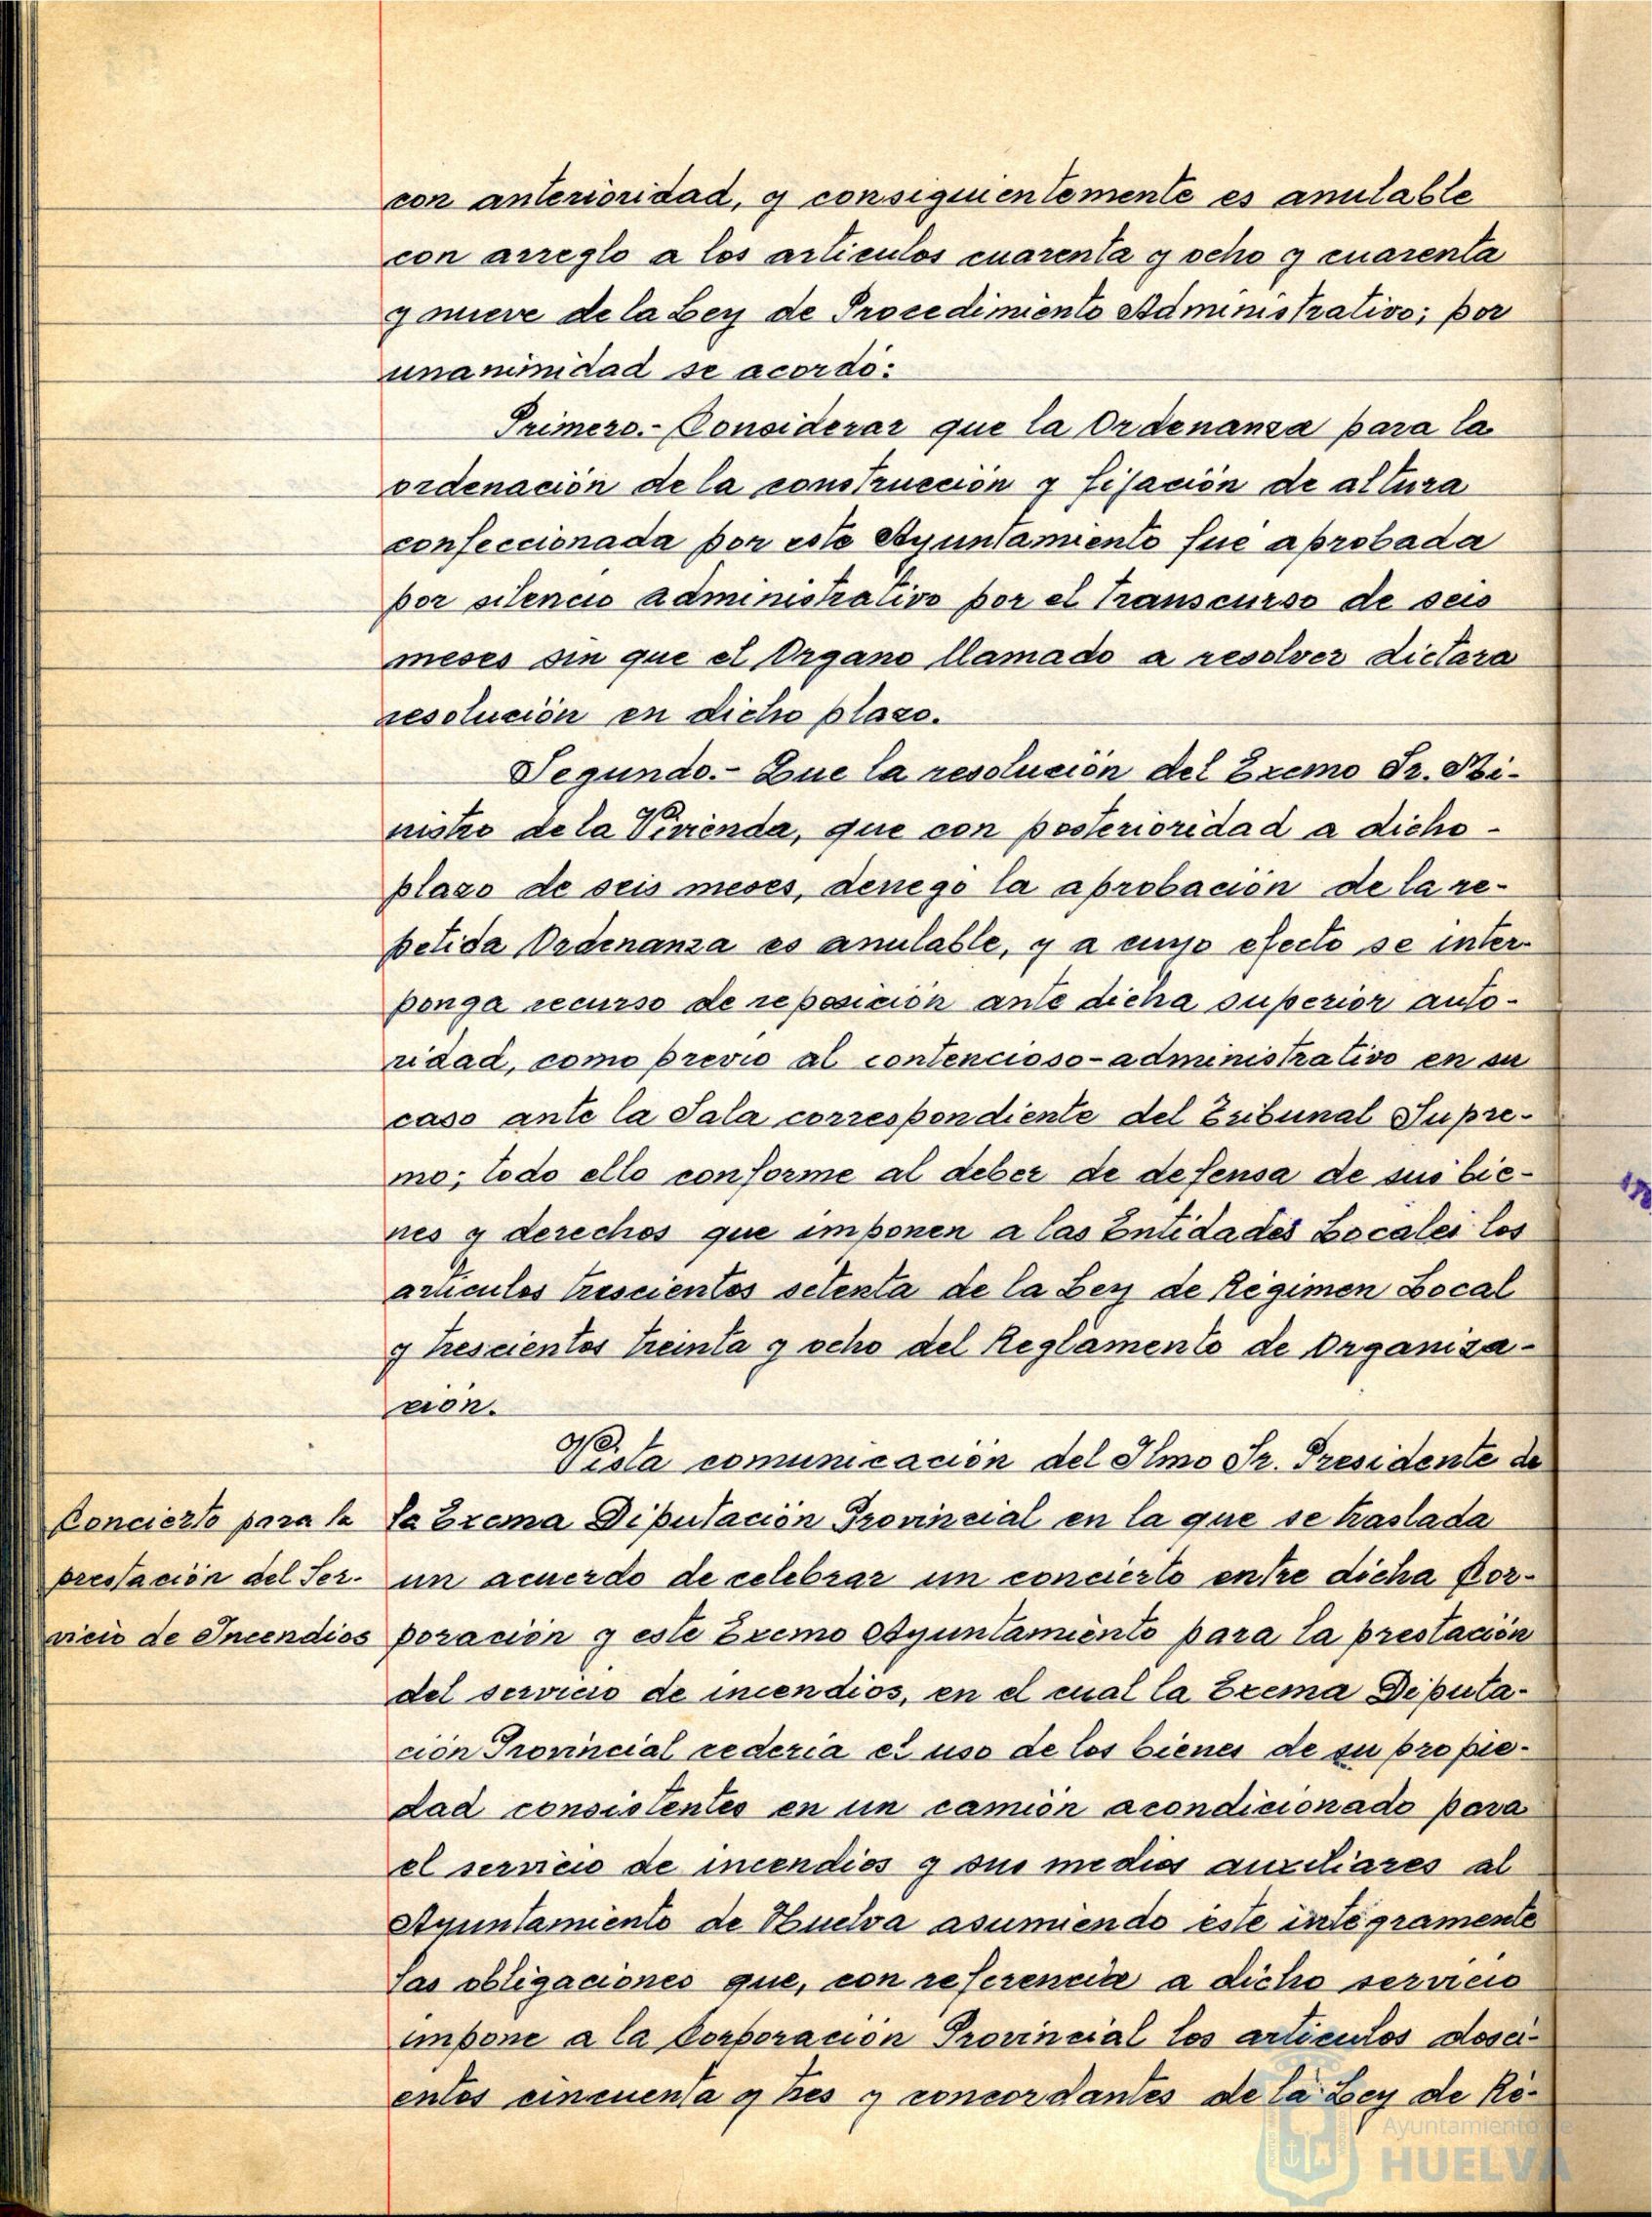 con anterioridad, y consiguientemente es anulable
con arreglo a los artículos cuarenta y ocho y cuarenta
y nueve de la Ley de Procedimiento Administrativo; por
unanimidad se acordó:
Primero.- Considerar que la Ordenanza para la
ordenación de la construcción y fijación de altura
confeccionada por este Ayuntamiento fué aprobada
por silencio administrativo por el transcurso de seis
meses sin que el Organo llamado a resolver dictara
resolución en dicho plazo.
Segundo.- Que la resolución del Excmo Sr. Mi-
nistro de la Vivienda, que con posterioridad a dicho -
plazo de seis meses, denegó la aprobación de la re-
petida Ordenanza es anulable, y a cuyo efecto se inter-
ponga recurso de reposición ante dicha superior auto-
ridad, como previo al contencioso-administrativo en su
caso ante la Sala correspondiente del Tribunal Supre-
mo; todo ello conforme al deber de defensa de sus bie-
nes y derechos que imponen a las Entidades Locales los
artículos trescientos setenta de la Ley de Régimen Local
y trescientos treinta y ocho del Reglamento de Organiza-
ción.
Vista comunicación del Ilmo Sr. Presidente de
Concierto para la
prestación del Ser-
vicio de Incendios
la Excma Diputación Provincial en la que se traslada
un acuerdo de celebrar un concierto entre dicha Cor-
poración y este Excmo Ayuntamiento para la prestación
del servicio de incendios, en el cual la Excma Diputa-
ción Provincial cedería el uso de los bienes de su propie-
dad consistentes en un camión acondicionado para
el servicio de incendios y sus medios auxiliares al
Ayuntamiento de Huelva asumiendo éste integramente
las obligaciones que, con referencia a dicho servicio
impone a la Corporación Provincial los artículos dosci-
entos cincuenta y tres y concordantes de la Ley de Ré-
Ayuntamiento de
HUELVA